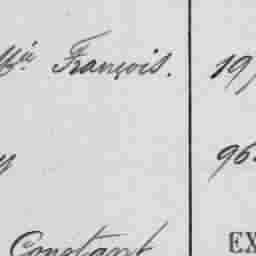 François. 19
96
Constant EX